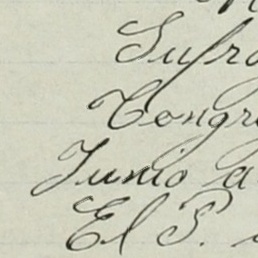 Sufra
Congre
Junio a
El P.